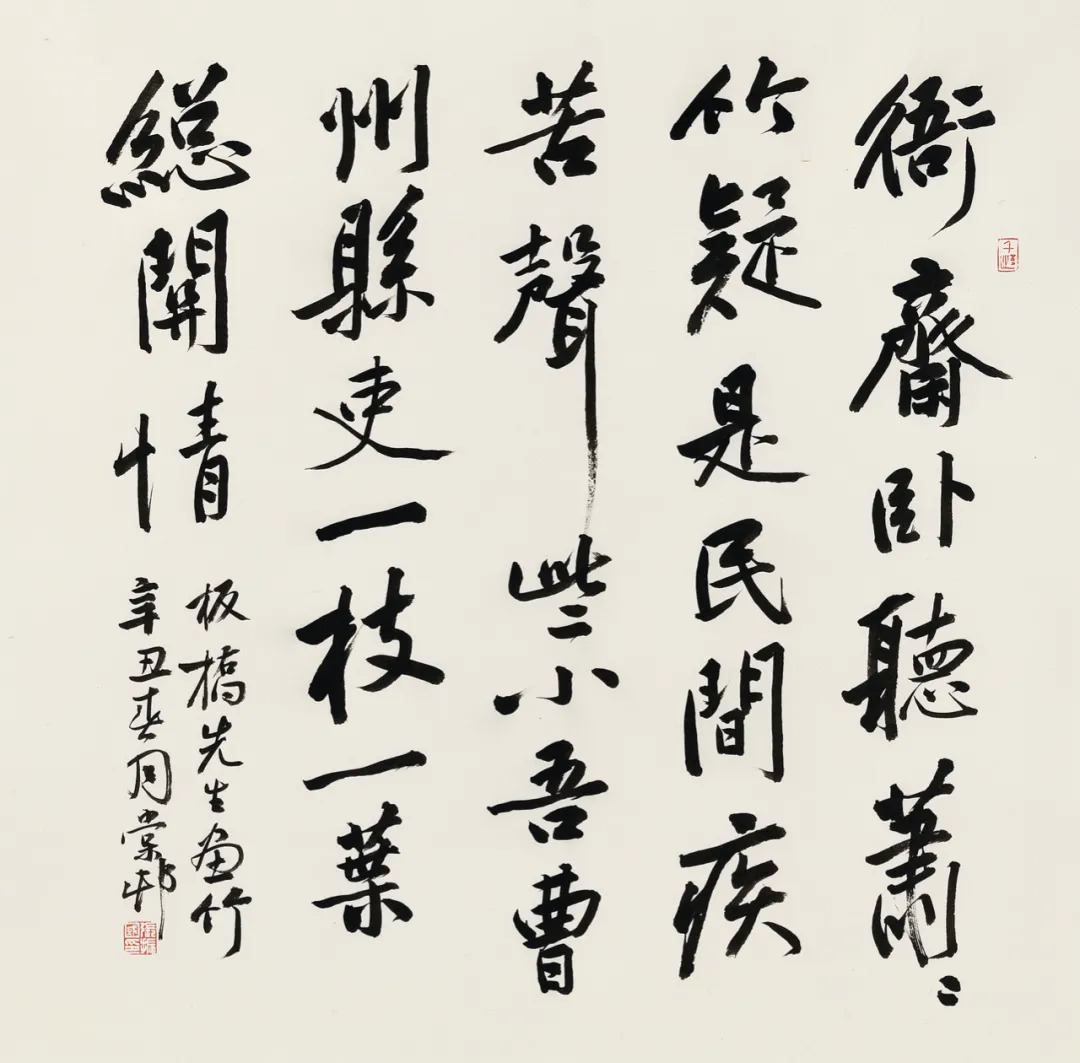 衙齋卧聽蕭〻
竹疑是民間疾
苦聲些小吾曹
州縣吏一枝一葉
總關情
板橋先生畫竹
辛丑春月棠邨